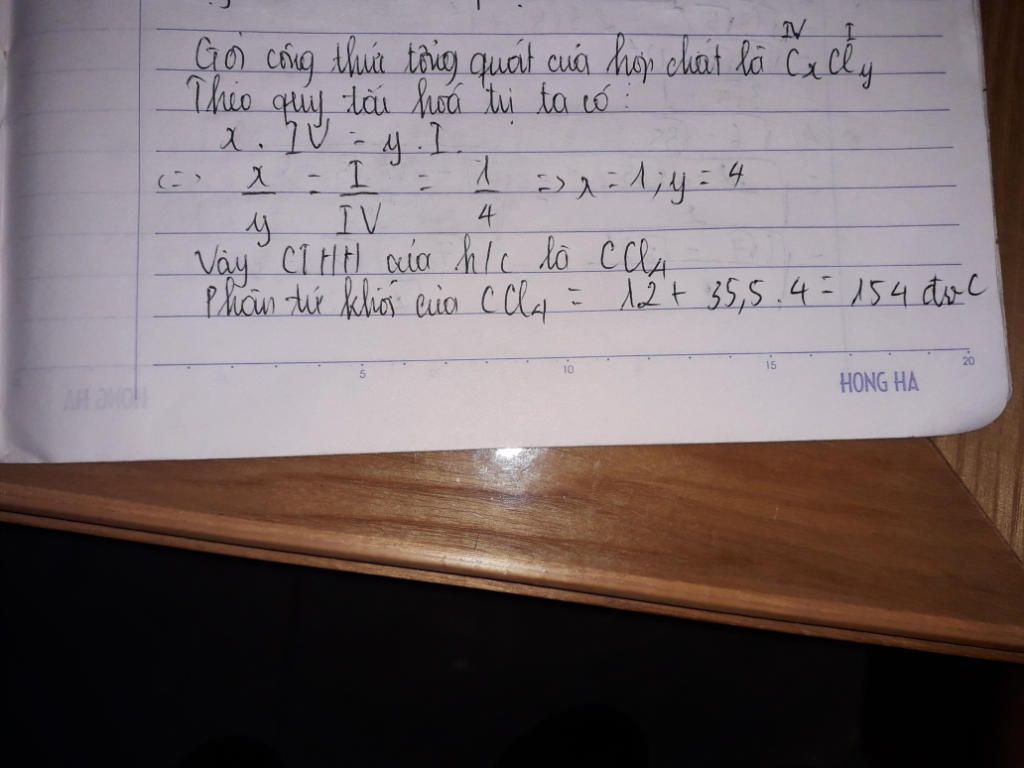 Gọi công thức tổng quát của hợp chất là CxCly
IV I
Theo quy tắc hoá trị ta có :
x . IV = y . I .
<=> x/y = I/IV = 1/4 => x = 1 ; y = 4
Vậy CTHH của h/c là CCl4
Phân tử khối của CCl4 = 12 + 35,5 . 4 = 154 đvC
5 10 15 20
HONG HA
HONG HA